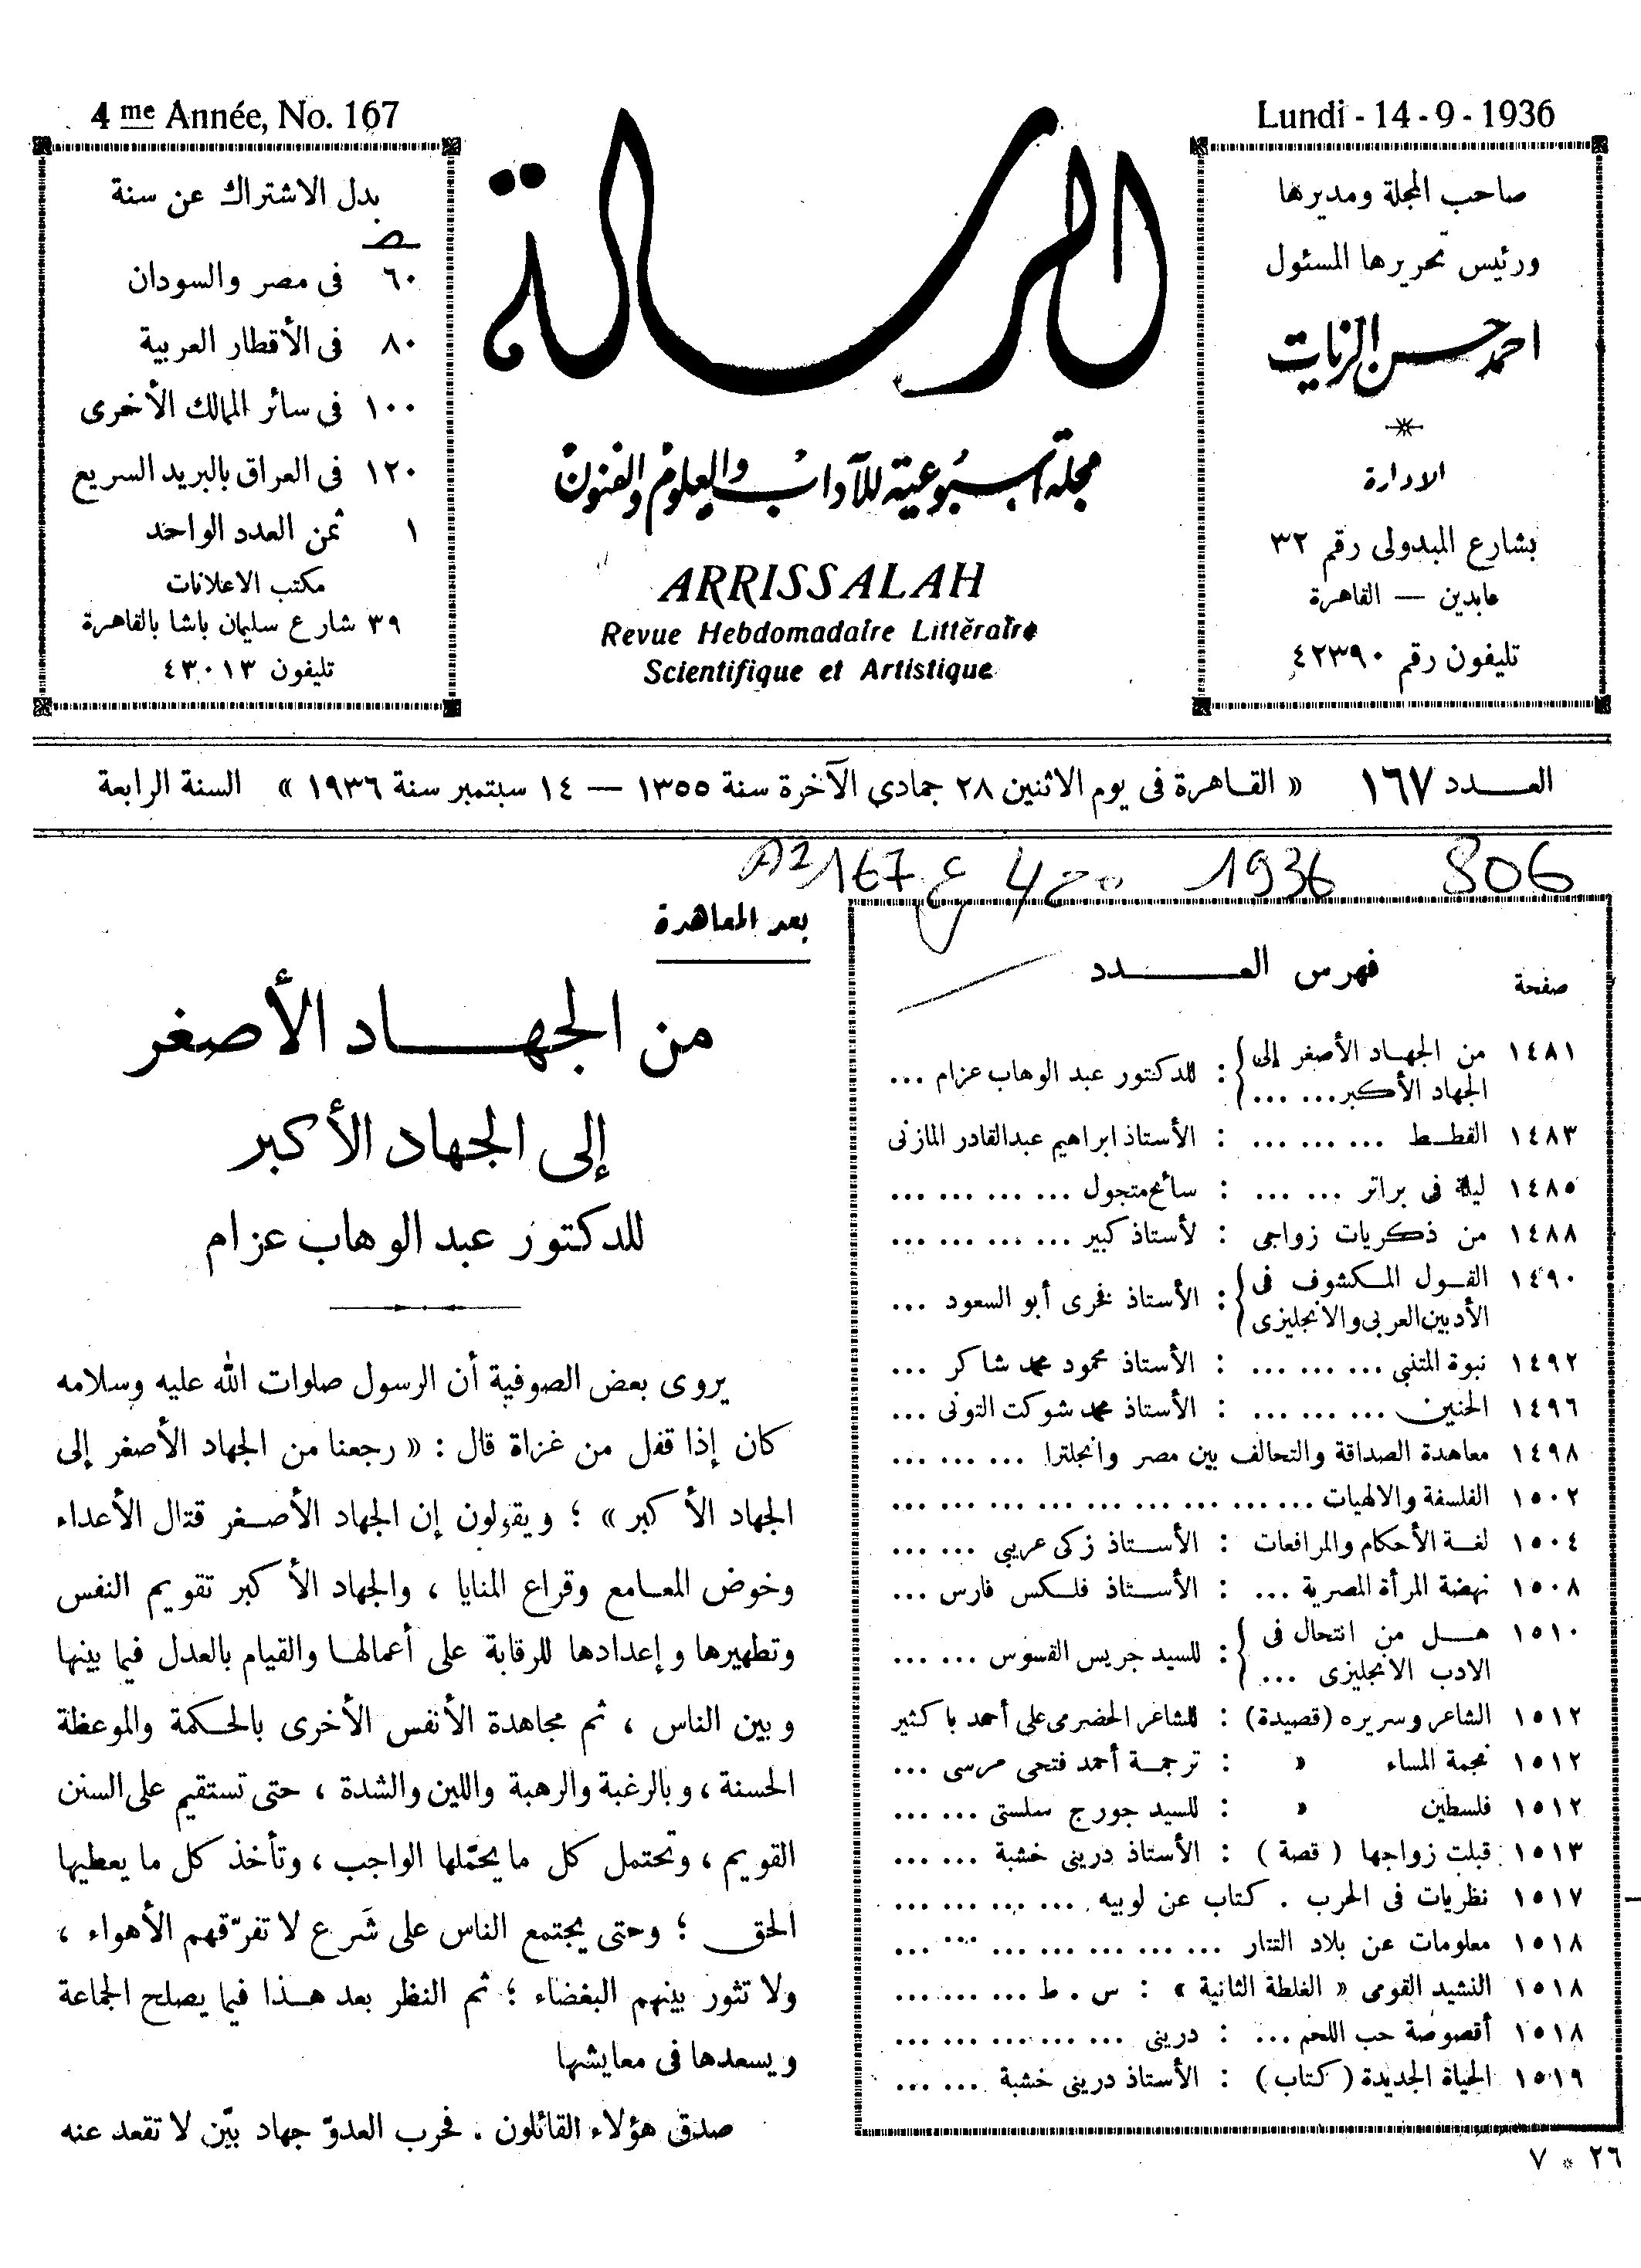 Lundi - 14 - 9 - 1936
صاحب المجلة ومديرها
ورئيس تحريرها المسئول
احمد حسن الزيات
الادارة
بشارع المبدولى رقم ٣٢
عابدين — القاهرة
تليفون رقم ٤٢٣٩٠
الرسالة
مجلة أسبوعية للآداب والعلوم والفنون
ARRISSALAH
Revue Hebdomadaire Littéraire
Scientifique et Artistique
4 me Année, No. 167
بدل الاشتراك عن سنة
٦٠ فى مصر والسودان
٨٠ فى الأقطار العربية
١٠٠ فى سائر الممالك الأخرى
١٢٠ فى العراق بالبريد السريع
١ ثمن العدد الواحد
مكتب الاعلانات
٣٩ شارع سليمان باشا بالقاهرة
تليفون ٤٣٠١٣
العـــدد ١٦٧ « القاهرة فى يوم الاثنين ٢٨ جمادى الآخرة سنة ١٣٥٥ — ١٤ سبتمبر سنة ١٩٣٦ » السنة الرابعة
806 1936 4 167
فهرس العـــدد
صفحة
١٤٨١ من الجهاد الأصغر إلى الجهاد الأكبر ... ... : للدكتور عبد الوهاب عزام ...
١٤٨٣ القطط ... ... ... : الأستاذ ابراهيم عبدالقادر المازنى
١٤٨٥ ليلة فى براتر ... ... : سائح متجول ... ... ... ...
١٤٨٨ من ذكريات زواجى : لأستاذ كبير ... ... ... ...
١٤٩٠ القول المكشوف فى الأدبين العربى والانجليزى : الأستاذ فخرى أبو السعود ...
١٤٩٢ نبوة المتنبى ... ... ... : الأستاذ محمود محمد شاكر ...
١٤٩٦ الحنين ... ... ... : الأستاذ محمد شوكت التونى ...
١٤٩٨ معاهدة الصداقة والتحالف بين مصر وانجلترا ... ... ...
١٥٠٢ الفلسفة والالهيات ... ... ... ... ... ... ... ... ...
١٥٠٤ لغة الأحكام والمرافعات : الأستاذ زكى عريبى ... ...
١٥٠٨ نهضة المرأة المصرية ... : الأستاذ فلكس فارس ...
١٥١٠ هل من انتحال فى الادب الانجليزى ... : للسيد جريس القسوس ... ...
١٥١٢ الشاعر وسريره (قصيدة) : للشاعر الحضرمى على أحمد باكثير
١٥١٢ نجمة المساء » : ترجمة أحمد فتحى مرسى ...
١٥١٢ فلسطين » : للسيد جورج سلستى ... ...
١٥١٣ قبلت زواجها ( قصة ) : الأستاذ درينى خشبة ... ...
١٥١٧ نظريات فى الحرب . كتاب عن لوبيه ... ... ... ...
١٥١٨ معلومات عن بلاد التتار ... ... ... ... ... ... ...
١٥١٨ النشيد القومى « الغلطة الثانية » : س . ط ... ... ...
١٥١٨ أقصوصة حب اللحم ... : درينى ... ... ... ... ...
١٥١٩ الحياة الجديدة ( كتاب ) : الأستاذ درينى خشبة ... ...
٢٦ * ٧
بعد المعاهدة
من الجهـــاد الأصغر
إلى الجهاد الأكبر
للدكتور عبد الوهاب عزام
يروى بعض الصوفية أن الرسول صلوات الله عليه وسلامه
كان إذا قفل من غزاة قال : « رجعنا من الجهاد الأصغر إلى
الجهاد الأكبر » ؛ ويقولون إن الجهاد الأصغر قتال الأعداء
وخوض المعامع وقراع المنايا ، والجهاد الأكبر تقويم النفس
وتطهيرها وإعدادها للرقابة على أعمالها والقيام بالعدل فيما بينها
وبين الناس ، ثم مجاهدة الأنفس الأخرى بالحكمة والموعظة
الحسنة ، وبالرغبة والرهبة واللين والشدة ، حتى تستقيم على السنن
القويم ، وتحتمل كل ما يحمّلها الواجب ، وتأخذ كل ما يعطيها
الحق ؛ وحتى يجتمع الناس على شَرع لا تفرّقهم الأهواء ،
ولا تثور بينهم البغضاء ؛ ثم النظر بعد هذا فيما يصلح الجماعة
ويسعدها فى معايشها
صدق هؤلاء القائلون . فحرب العدوّ جهاد بيّن لا تقعد عنه